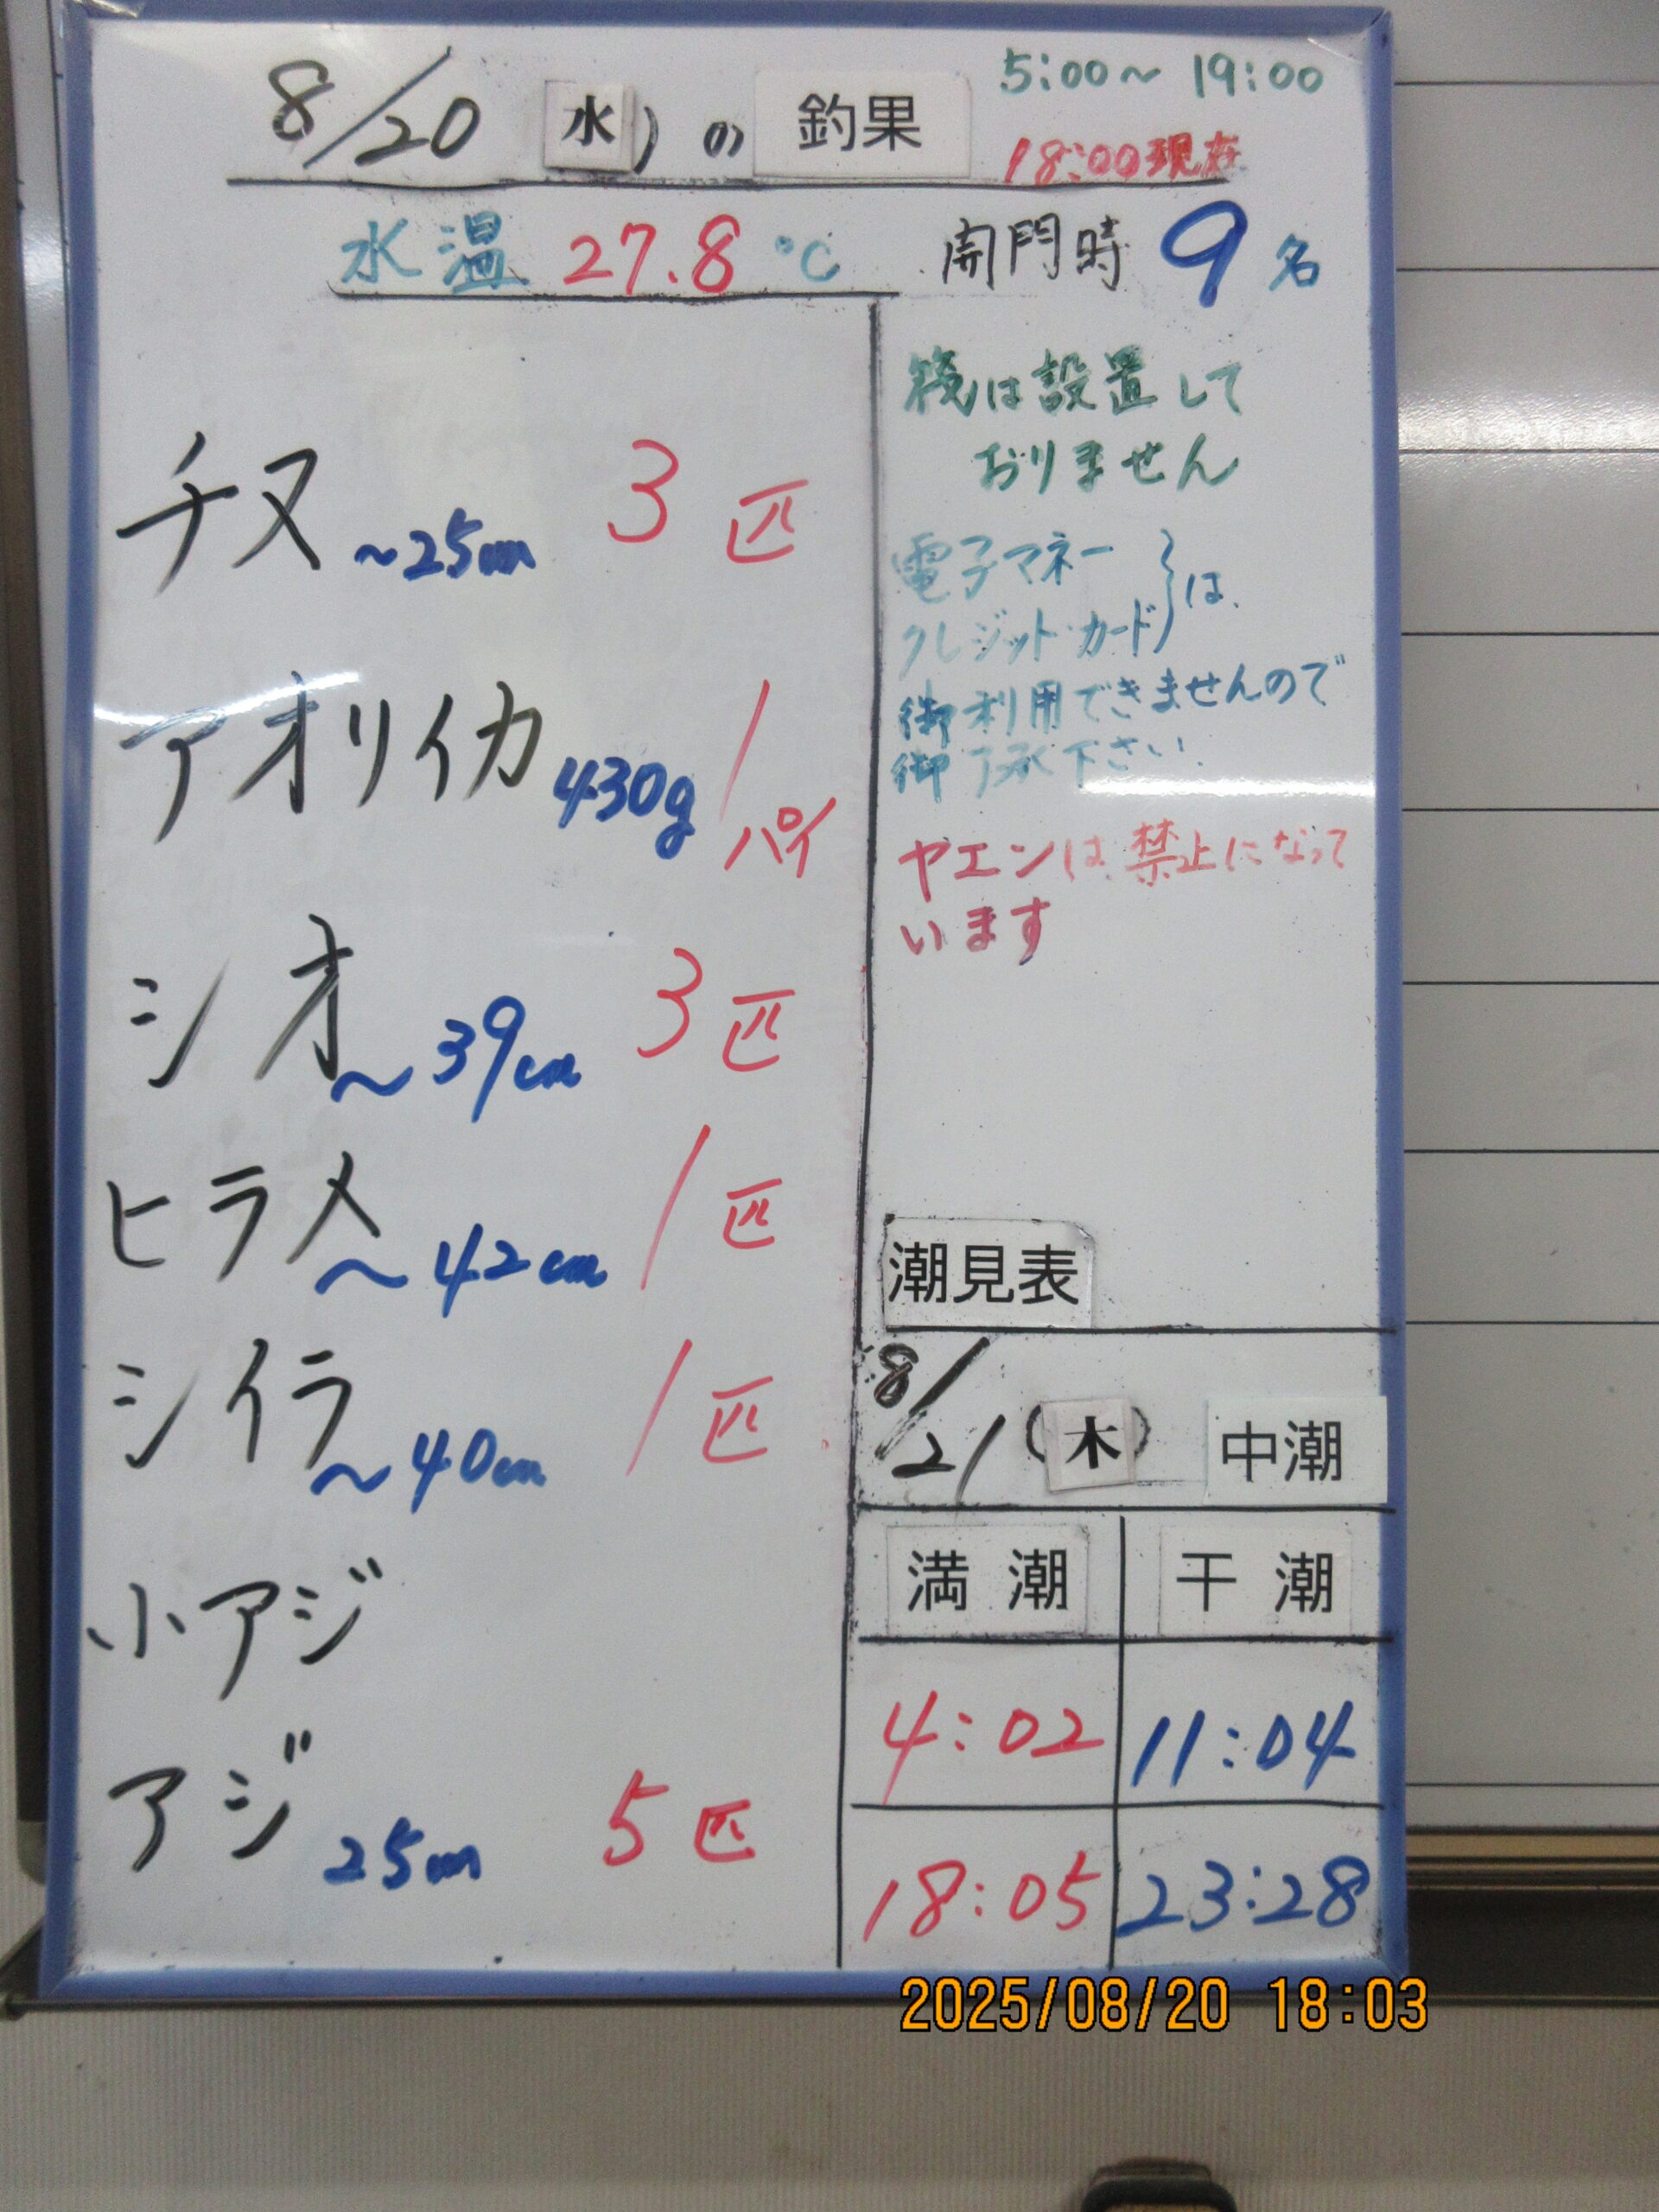 8/20 水) の 釣果
5:00~19:00
18:00現在
水温 27.8 ℃
開門時 9 名
チヌ ~25cm 3 匹
アオリイカ 430g 1 パイ
シオ ~39cm 3 匹
ヒラメ ~42cm 1 匹
シイラ ~40cm 1 匹
小アジ
アジ 25cm 5 匹
筏は設置して
おりません
電子マネー
クレジットカード}は
御利用できませんので
御了承下さい.
ヤエンは禁止になって
います
潮見表
8/21 (木) 中潮
満潮 干潮
4:02 11:04
18:05 23:28
2025/08/20 18:03